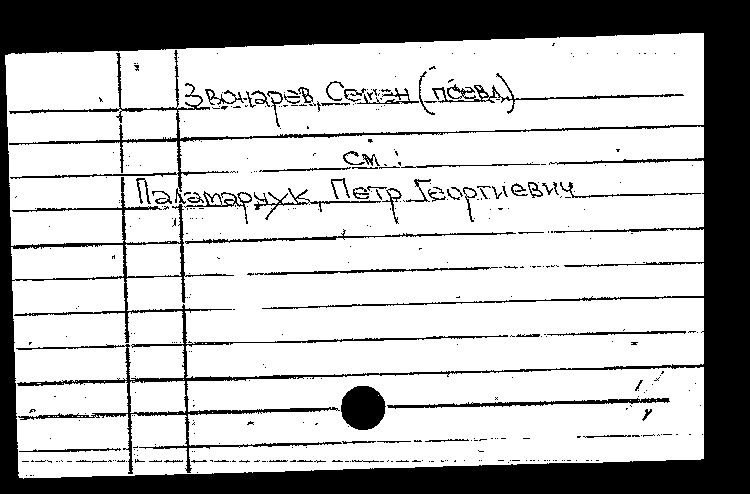 Звонарев, Семен (псевд.)
см.:
Паламарчук, Петр Георгиевич